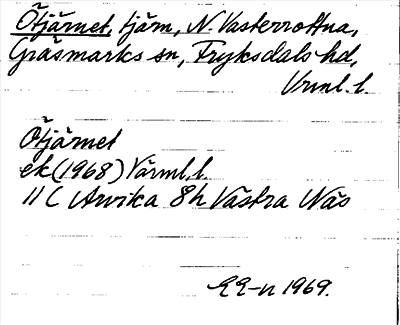 Ötjärnet, tjärn, N. Västerrottna,
Gräsmarks sn, Fryksdals hd,
Vrml. l.
Ötjärnet
ek (1968) Värml. l.
11 C Arvika 8h Västra Näs
1969.